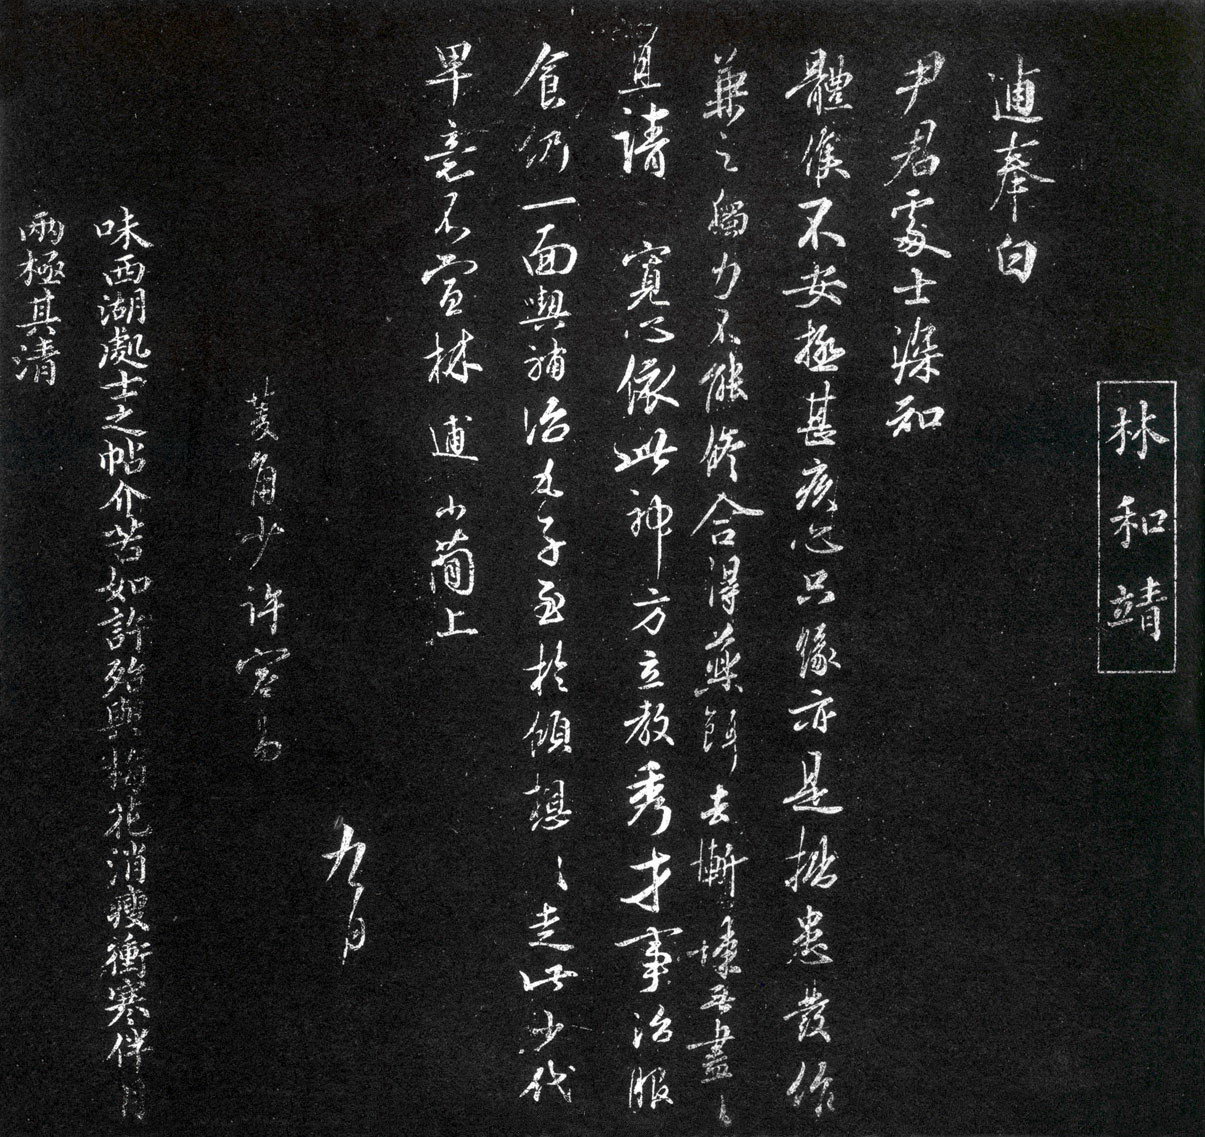 林和靖
逋奉白
尹君處士深知
體候不安極甚疾心只緣亦是拙患發作
兼之觸力不能修合得藥餌去慚悚無盡〻
且請寬心依此神方立教秀才事治服
食仍一面與補治丸子至於傾想〻走此少代
早毫不宣林逋小簡上
九月
菱角少許容易
味西湖處士之帖介苦如許殆與梅花消瘦衝寒伴月
兩極其清